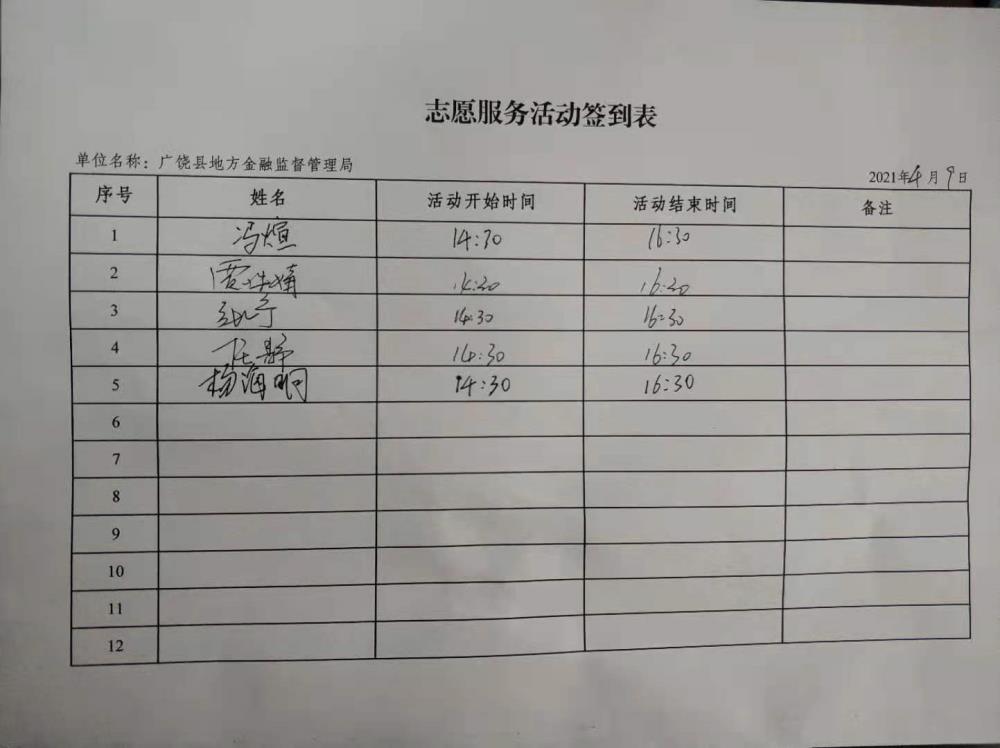 志愿服务活动签到表
单位名称：广饶县地方金融监督管理局 2021年4月9日
序号 姓名 活动开始时间 活动结束时间 备注
1 冯煊 14:30 16:30
2 14:30 16:30
3 14:30 16:30
4 任静 14:30 16:30
5 杨海明 14:30 16:30
6
7
8
9
10
11
12